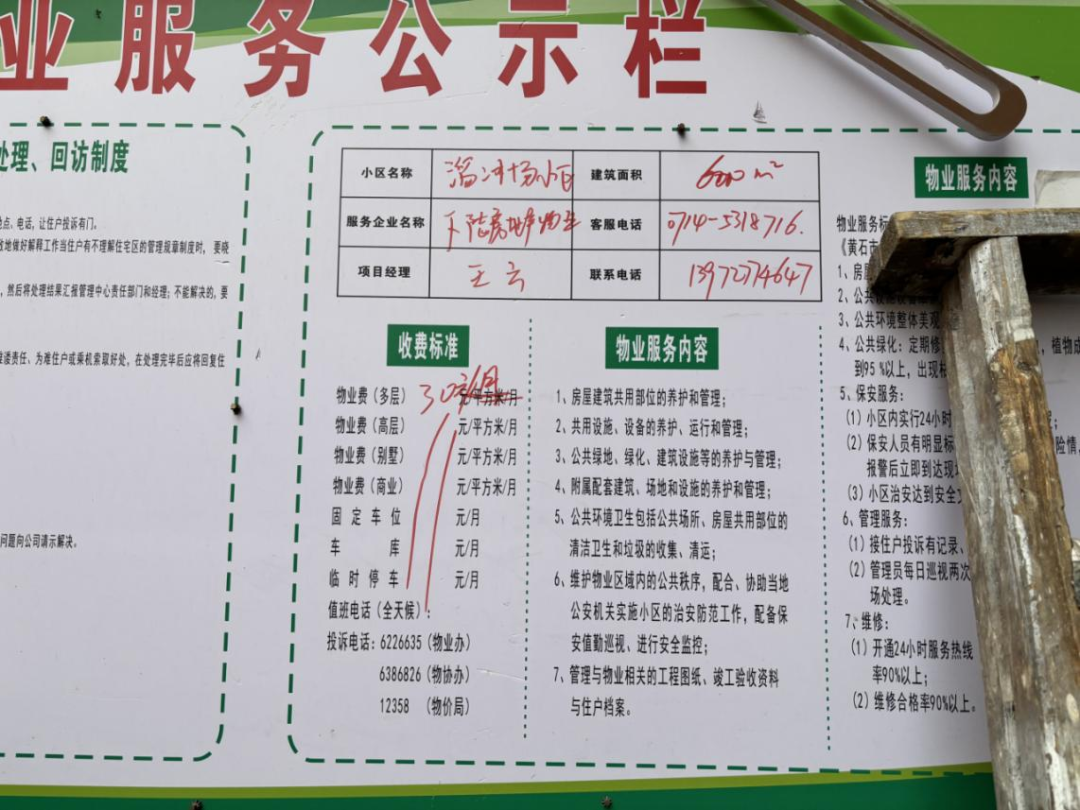 业服务公示栏
处理、回访制度
地点、电话，让住户投诉有门。
做好解释工作当住户有不理解住宅区的管理规章制度时，要晓
，然后将处理结果汇报管理中心责任部门和经理；不能解决的，要
推诿责任、为难住户或乘机索取好处，在处理完毕后应将回复住
问题向公司请示解决。
小区名称
建筑面积 600 m²
服务企业名称
客服电话 0714-5318716.
项目经理 王云
联系电话 13972774647
收费标准
物业费（多层） 30元/月 元/平方米/月
物业费（高层） 元/平方米/月
物业费（别墅） 元/平方米/月
物业费（商业） 元/平方米/月
固定车位 元/月
车库 元/月
临时停车 元/月
值班电话（全天候）：
投诉电话：6226635（物业办）
6386826（物协办）
12358（物价局）
物业服务内容
1、房屋建筑共用部位的养护和管理；
2、共用设施、设备的养护、运行和管理；
3、公共绿地、绿化、建筑设施等的养护与管理；
4、附属配套建筑、场地和设施的养护和管理；
5、公共环境卫生包括公共场所、房屋共用部位的
清洁卫生和垃圾的收集、清运；
6、维护物业区域内的公共秩序，配合、协助当地
公安机关实施小区的治安防范工作，配备保
安值勤巡视、进行安全监控；
7、管理与物业相关的工程图纸、竣工验收资料
与住户档案。
物业服务内容
物业服务标
《黄石市
1、房屋
2、公共
3、公共环境整体美观
4、公共绿化：定期修 ，植物成
到95％以上，出现枯
5、保安服务：
（1）小区内实行24小时 ；
（2）保安人员有明显标 险情，
报警后立即到达现场
（3）小区治安达到安全
6、管理服务：
（1）接住户投诉有记录、
（2）管理员每日巡视两次
场处理。
7、维修：
（1）开通24小时服务热线
率90%以上；
（2）维修合格率90%以上。